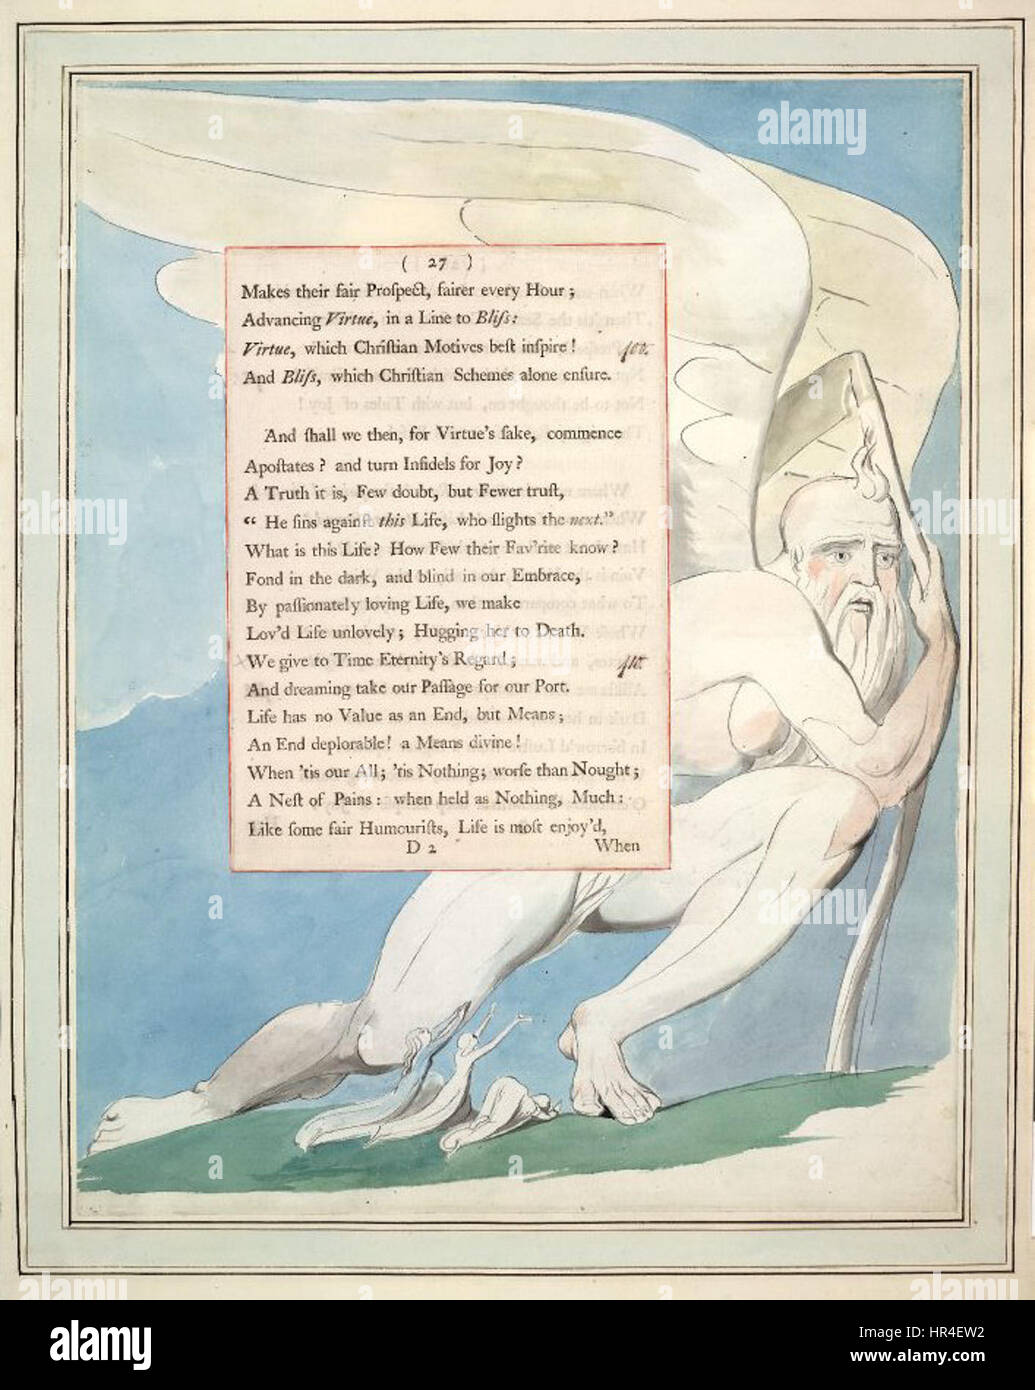 ( 27 )
Makes their fair Proſpect, fairer every Hour ;
Advancing Virtue, in a Line to Bliſs :
Virtue, which Chriſtian Motives beſt inſpire ! 400.
And Bliſs, which Chriſtian Schemes alone enſure.
And ſhall we then, for Virtue's ſake, commence
Apoſtates ? and turn Infidels for Joy ?
A Truth it is, Few doubt, but Fewer truſt,
“ He ſins againſt this Life, who ſlights the next.”
What is this Life ? How Few their Fav'rite know ?
Fond in the dark, and blind in our Embrace,
By paſſionately loving Life, we make
Lov'd Life unlovely ; Hugging her to Death.
We give to Time Eternity's Regard ; 410.
And dreaming take our Paſſage for our Port.
Life has no Value as an End, but Means ;
An End deplorable ! a Means divine !
When 'tis our All ; 'tis Nothing ; worſe than Nought ;
A Neſt of Pains : when held as Nothing, Much :
Like ſome fair Humouriſts, Life is moſt enjoy'd,
D 2 When
alamy
alamy
Image ID: HR4EW2
www.alamy.com